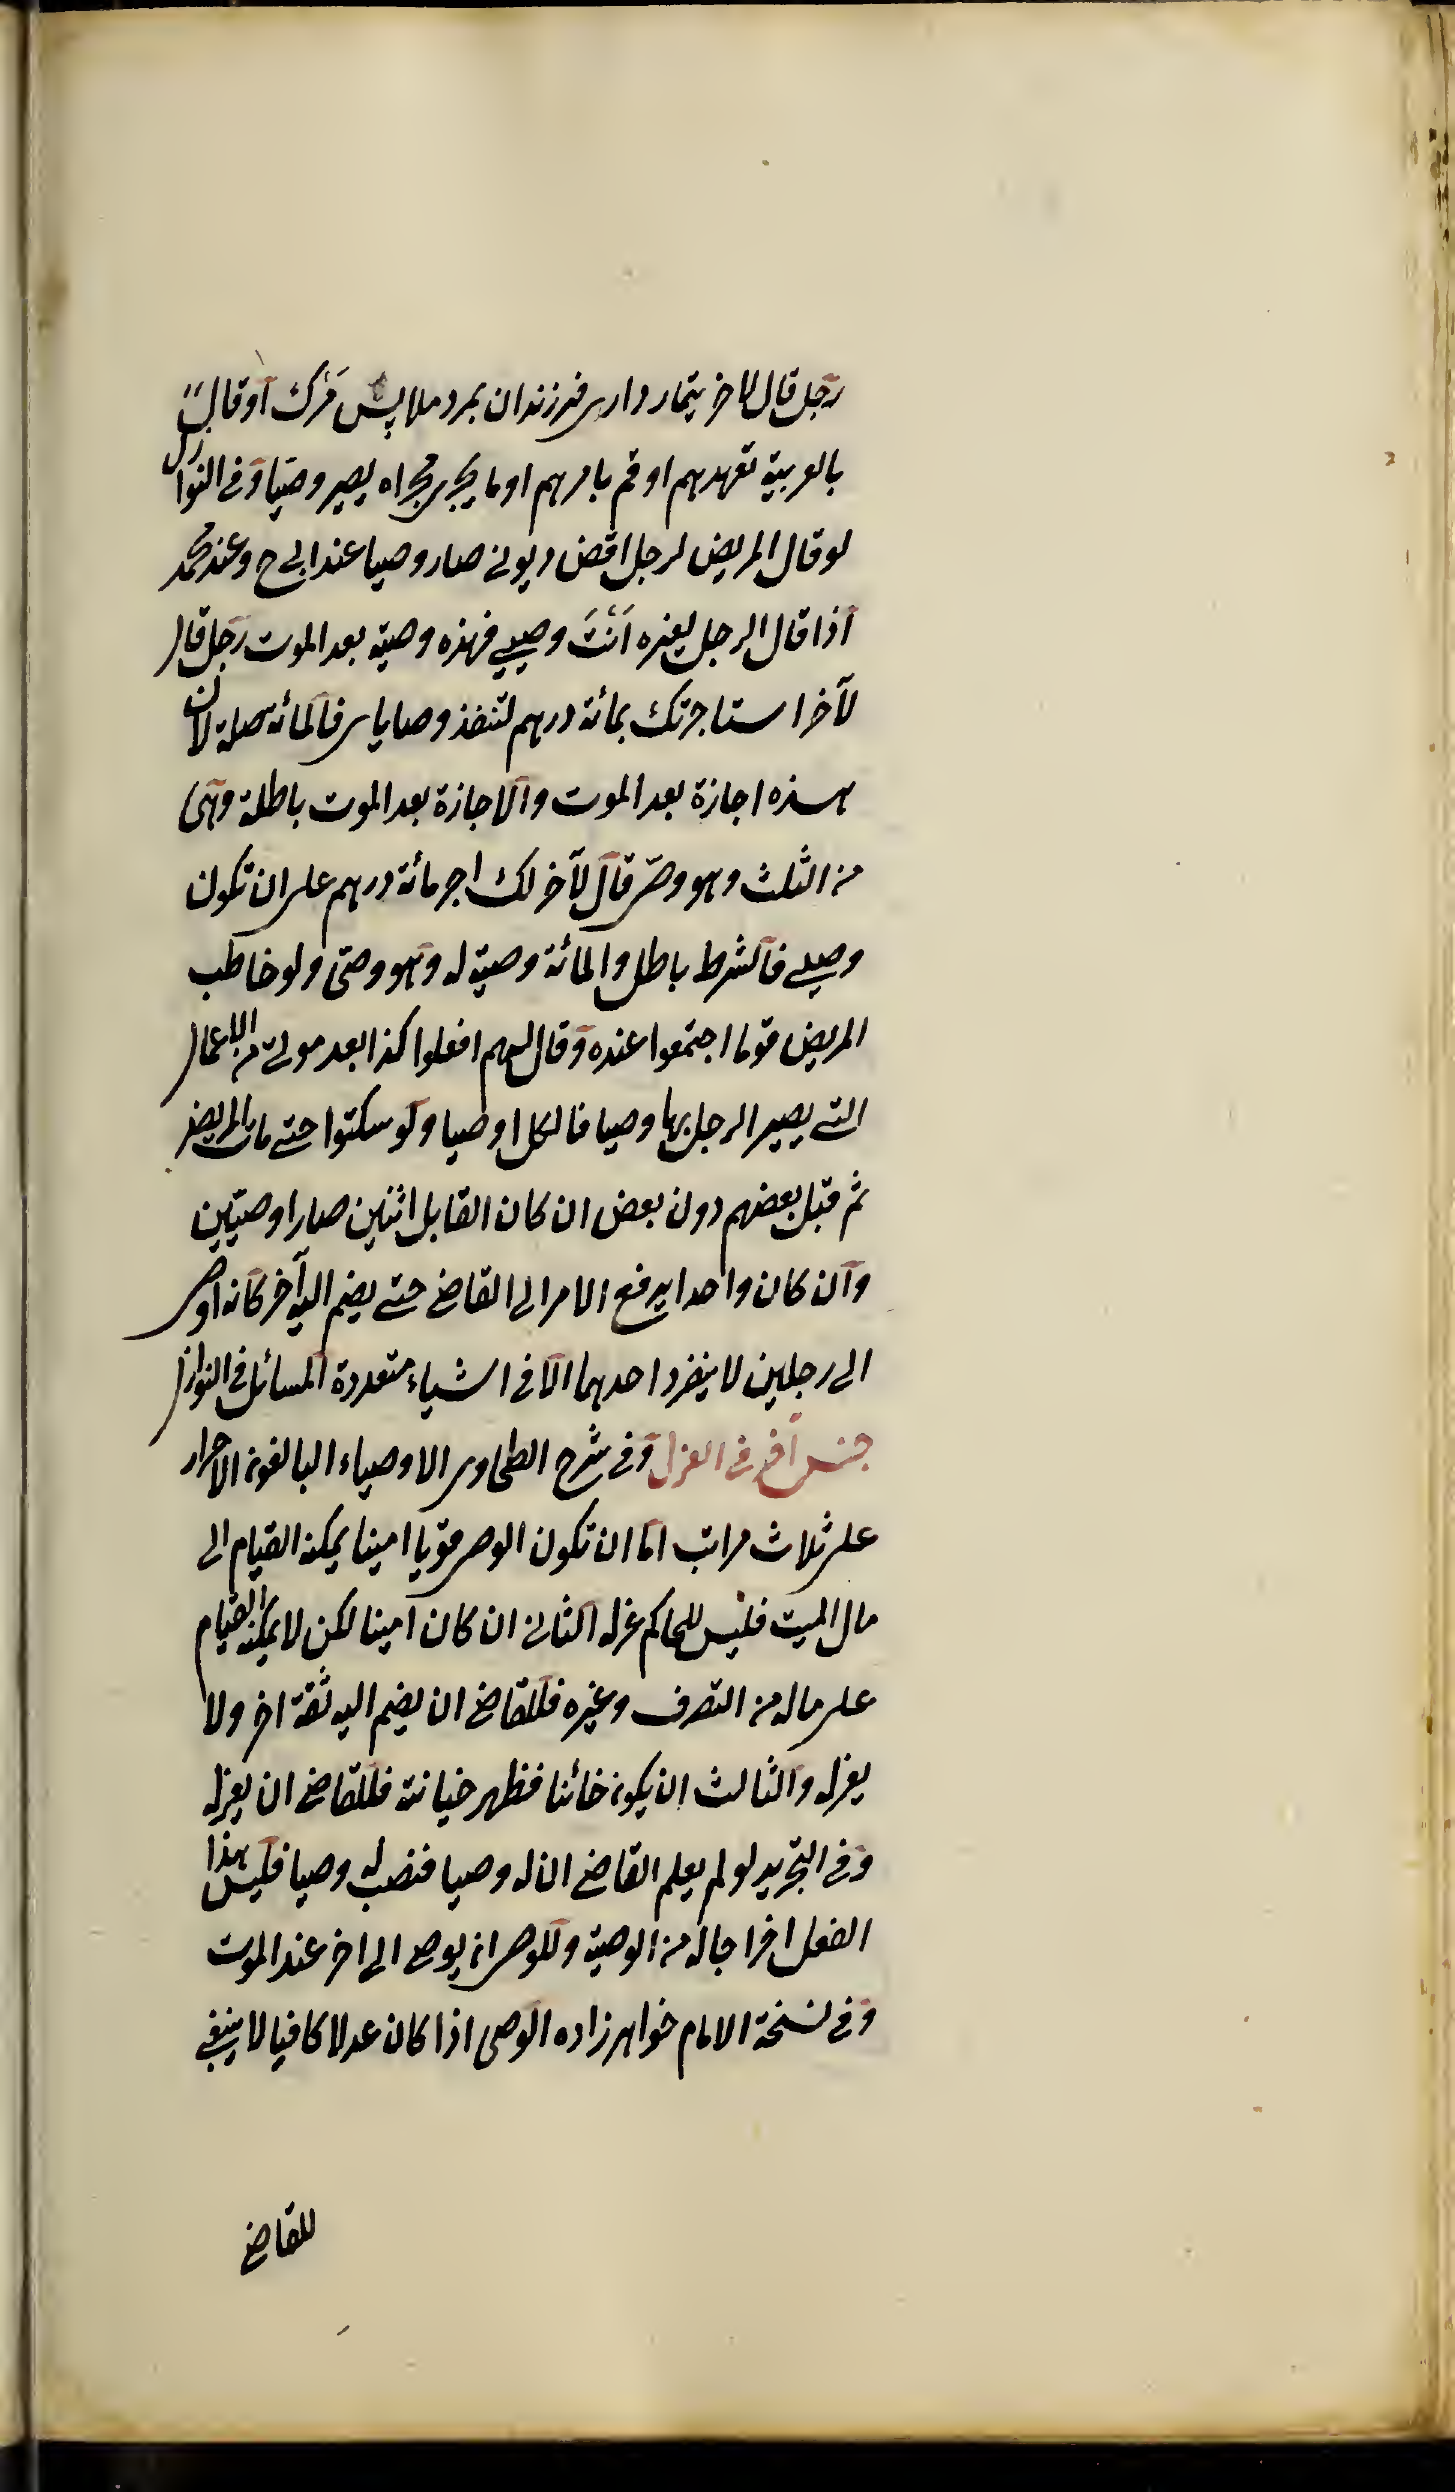 رجل قال لاخر تيمار دار فرزندان بمرد ملا پس مَرْك او قال
بالعربية تعهدهم او قم بامرهم او ما يجرى مجراه يصير وصيّا وفى النوازل
لو قال المريض لرجل اقض ديونى صار وصيا عند ابى ح وعند محمد
اذا قال الرجل لغيره اَنْتَ وصيي فهذه وصية بعد الموت رجل قال
لآخر استاجرتك بمائة درهم لتنفذ وصاياى فالمائة صلة لان
هذه اجازة بعد الموت والاجازة بعد الموت باطلة وهى
من الثلث وهو وصى قال لآخر لك اجر مائة درهم على ان تكون
وصيى فالشرط باطل والمائة وصية له وهو وصى ولو خاطب
المريض قوما اجتمعوا عنده وقال لهم افعلوا كذا بعد موتى من الاعمال
التى يصير الرجل بها وصيا فالكل اوصيا ولو سكتوا حتى مات المريض
ثم قبل بعضهم دون بعض ان كان القابل اثنين صارا وصيّين
وان كان واحدا يرفع الامر الى القاضى حتى يضم اليه آخر كانه اوصى
الى رجلين لا ينفرد احدهما الا فى اشياء متعددة المسائل فى النوازل
جنس آخر فى العزل وفى شرح الطحاوى الاوصياء البالغون الاحرار
على ثلاث مراتب اما ان تكون الوصى قويا امينا يمكنه القيام الى
مال الميت فليس للحاكم عزله الثانى ان كان امينا لكن لا يمكنه القيام
على ماله من التصرف وغيره فللقاضى ان يضم اليه ثقة اخر ولا
يعزله والثالث ان يكون خائنا فظهر خيانته فللقاضى ان يعزله
وفى التجريد لو لم يعلم القاضى ان له وصيا فنصب له وصيا فليس هذا
الفعل اخراجا له من الوصية وللوصى ان يوصى الى اخر عند الموت
وفى نسخة الامام خواهرزاده الوصى اذا كان عدلا كافيا لا ينبغى
للقاضى